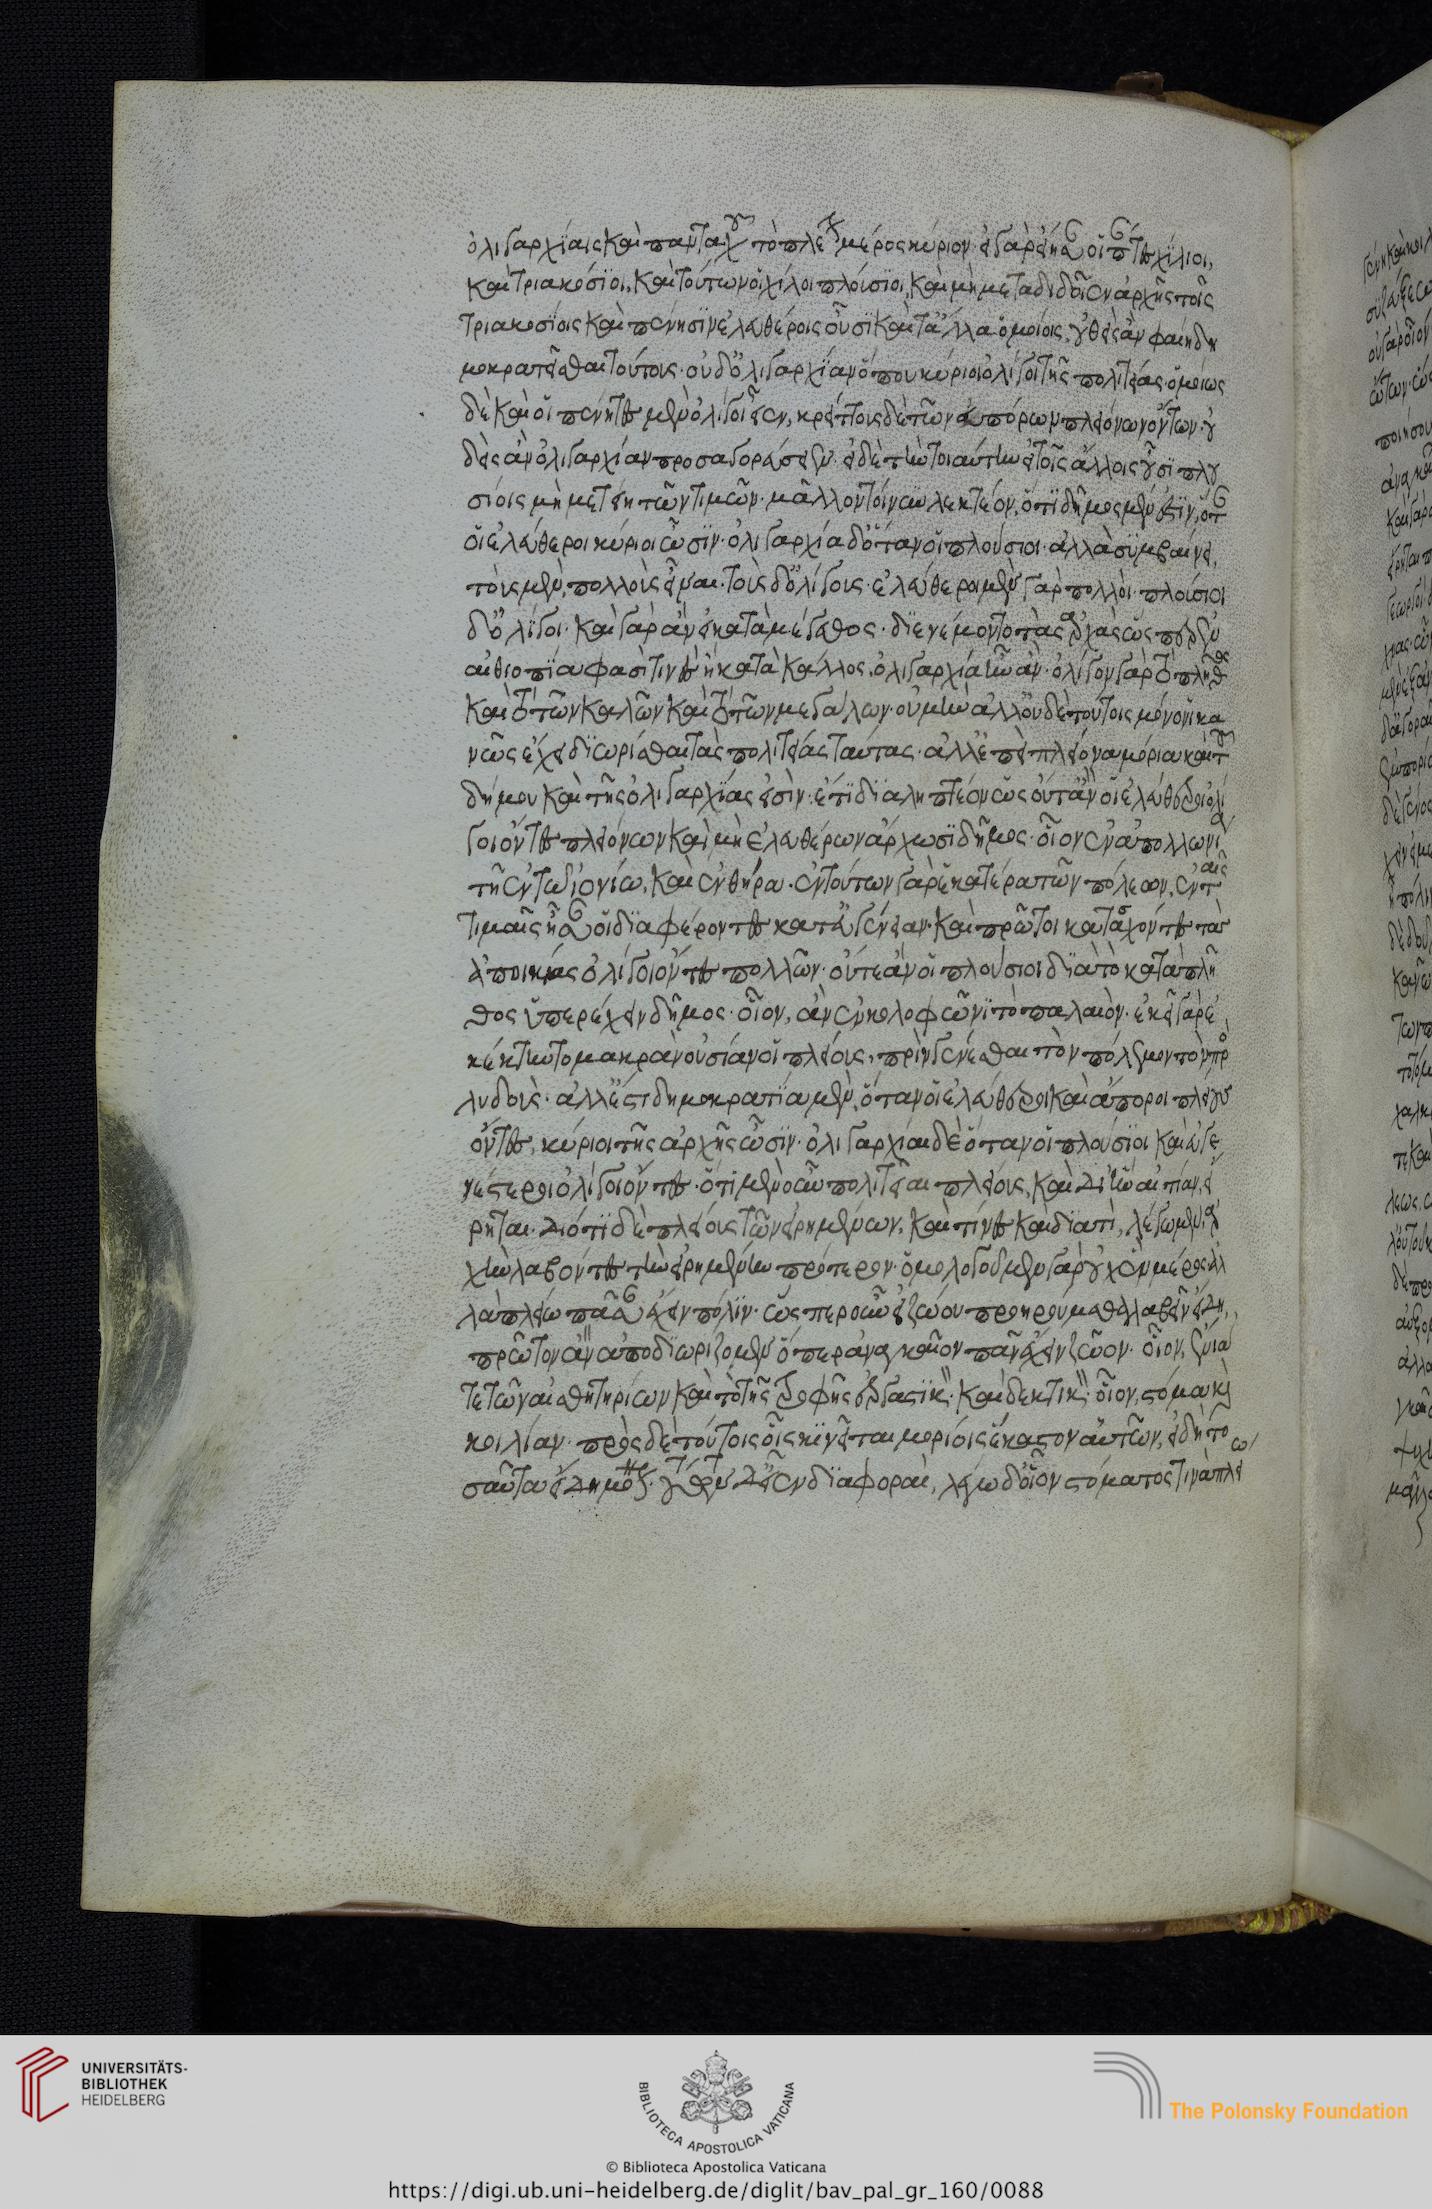 ὀλιγαρχίαις καὶ πανταχοῦ τὸ πλέον μέρος κύριον· εἰ γὰρ εἴησαν οἱ πάντες χίλιοι,
καὶ τριακόσιοι, καὶ τούτων οἱ χίλιοι πλούσιοι, καὶ μὴ μεταδιδοῖεν ἀρχῆς τοῖς
τριακοσίοις καὶ πένησιν ἐλευθέροις οὖσι καὶ τἆλλα ὁμοίοις, οὐθεὶς ἂν φαίη δη
μοκρατεῖσθαι τούτους· οὐδ' ὀλιγαρχίαν ὅπου κύριοι ὀλίγοι τῆς πολιτείας· ὁμοίως
δὲ καὶ οἱ πένητες μὲν ὀλίγοι εἶεν, κρείττους δὲ τῶν εὐπόρων πλειόνων ὄντων· οὐ
δεὶς ἂν ὀλιγαρχίαν προσαγορεύσειεν· εἰ δὲ τὴν τοιαύτην εἰ τοῖς ἄλλοις οὖσι πλου
σίοις μὴ μετείη τῶν τιμῶν· μᾶλλον τοίνυν λεκτέον, ὅτι δῆμος μέν ἐστιν, ὅταν
οἱ ἐλεύθεροι κύριοι ὦσιν· ὀλιγαρχία δ' ὅταν οἱ πλούσιοι· ἀλλὰ συμβαίνει,
τοὺς μὲν, πολλοὺς εἶναι· τοὺς δ' ὀλίγους· ἐλεύθεροι μὲν γὰρ πολλοὶ· πλούσιοι
δ' ὀλίγοι· καὶ γὰρ ἂν εἰ κατὰ μέγεθος· διενέμοντο τὰς ἀρχὰς ὥσπερ ἐν
αἰθιοπία φασί τινες ἢ κατὰ κάλλος, ὀλιγαρχία ἦν ἄν· ὀλίγον γὰρ τὸ πλῆθος
καὶ τὸ τῶν καλῶν καὶ τὸ τῶν μεγάλων· οὐ μὴν ἀλλ' οὐδὲ τούτοις μόνον ἱκα
νῶς ἔχει διωρίσθαι τὰς πολιτείας ταύτας· ἀλλ' ἐπεὶ πλείονα μόρια καὶ τοῦ
δήμου καὶ τῆς ὀλιγαρχίας εἰσὶν· ἔτι διαληπτέον ὡς οὔτ' ἂν οἱ ἐλεύθεροι ὀλί
γοι ὄντες πλειόνων καὶ μὴ ἐλευθέρων ἄρχωσι δῆμος· οἷον ἐν ἀπολλωνία
τῆ ἐν τῶ ἰονίω, καὶ ἐν θήρα· ἐν τούτων γὰρ ἑκατέρα τῶν πόλεων, ἐν ταῖς
τιμαῖς ἦσαν οἱ διαφέροντες κατ' εὐγένειαν· καὶ πρῶτοι κατασχόντες τὰς
ἀποικίας ὀλίγοι ὄντες πολλῶν· οὔτε ἂν οἱ πλούσιοι διὰ τὸ κατὰ πλῆ
θος ὑπερέχειν δῆμος· οἷον, ἂν ἐν κολοφῶνι τὸ παλαιόν· ἐκεῖ γὰρ ἐ
κέκτηντο μακρὰν οὐσίαν οἱ πλείους, πρὶν γενέσθαι τὸν πόλεμον τὸν πρὸς
λυδούς· ἀλλ' ἔστι δημοκρατία μὲν, ὅταν οἱ ἐλεύθεροι καὶ ἄποροι πλείους
ὄντες, κύριοι τῆς ἀρχῆς ὦσιν· ὀλιγαρχία δὲ ὅταν οἱ πλούσιοι καὶ εὐγε
νέστεροι ὀλίγοι ὄντες· ὅτι μὲν οὖν πολιτεῖαι πλείους, καὶ δι' ἣν αἰτίαν, εἴ
ρηται· διότι δὲ πλείους τῶν εἰρημένων, καὶ τίνες καὶ διατί, λέγωμεν, ἀρ
χὴν λαβόντες τὴν εἰρημένην πρότερον· ὁμολογοῦμεν γὰρ οὐχ ἓν μέρος ἀλ
λὰ πλείω πᾶσαν ἔχειν πόλιν· ὥσπερ οὖν εἰ ζώου προηρούμεθα λαβεῖν εἴδη,
πρῶτον ἂν ἀποδιωρίζομεν ὅπερ ἀναγκαῖον πᾶν ἔχειν ζῶον· οἷον, ἔνιά
τε τῶν αἰσθητηρίων καὶ τὸ τῆς τροφῆς ἐργαστικὸν· καὶ δεκτικόν· οἷον, στόμα καὶ
κοιλίαν· πρὸς δὲ τούτοις οἷς κινεῖται μορίοις ἕκαστον αὐτῶν, εἰ δὴ το
σαῦτα εἴδη μόνον· τούτων δ' εἶεν διαφοραὶ, λέγω δ' οἷον στόματος τινὰ πλεί
ω
UNIVERSITÄTS-
BIBLIOTHEK
HEIDELBERG
BIBLIOTECA APOSTOLICA VATICANA
The Polonsky Foundation
© Biblioteca Apostolica Vaticana
https://digi.ub.uni-heidelberg.de/diglit/bav_pal_gr_160/0088